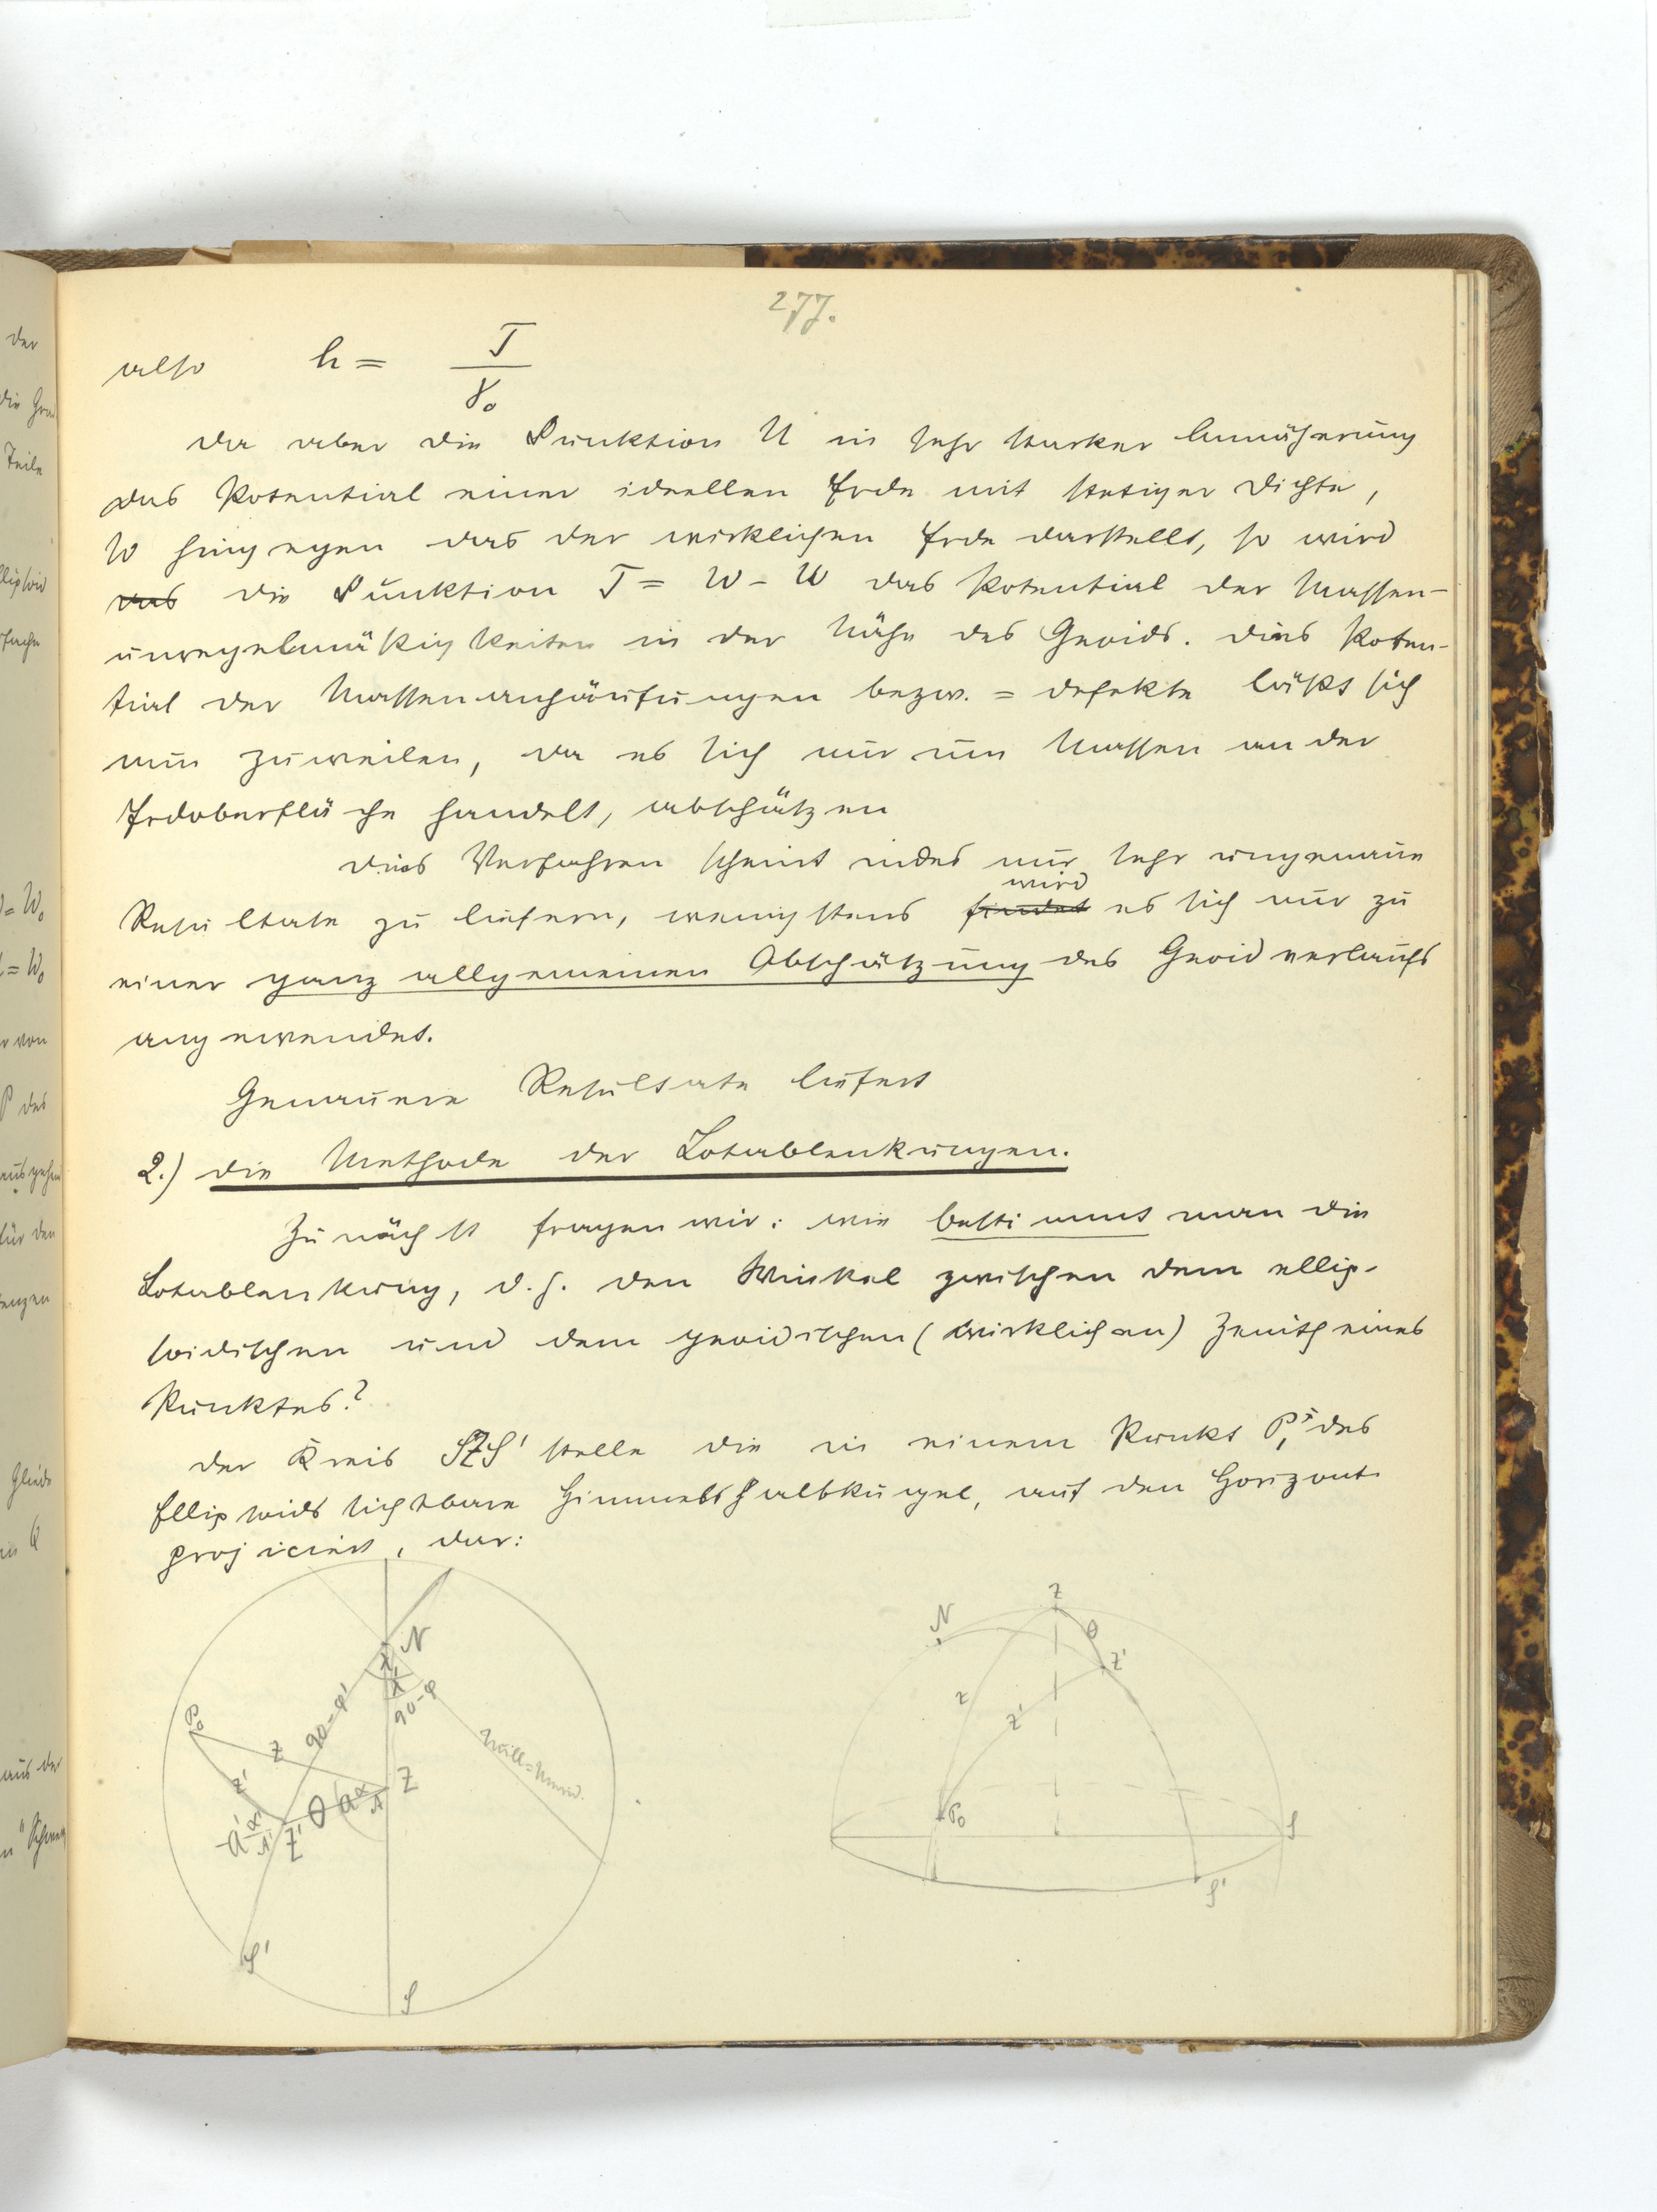 277.
also h = T / γ₀
Da aber die Funktion U in sehr starker Annäherung
das Potential einer ideellen Erde mit stetiger Dichte,
W hingegen das der wirklichen Erde darstellt, so wird
das die Funktion T = W - U das Potential der Massen-
unregelmäßigkeiten in der Nähe des Geoids. Dies Poten-
tial der Massenanhäufungen bezw. = defekte läßt sich
nun zuweilen, da es sich nur um Massen an der
Erdoberfläche handelt, abschätzen
Dies Verfahren scheint indes nur sehr ungenaue
wird
Resultate zu liefern, wenigstens findet es sich nur zu
einer ganz allgemeinen Abschätzung des Geoidverlaufs
angewendet.
Genauere Resultate liefert
2.) die Methode der Lotablenkungen.
Zunächst fragen wir: wie bestimmt man die
Lotablenkung, d. h. den Winkel zwischen dem ellip-
soidischen und dem geoidischen (wirklichen) Zenith eines
Punktes?
Der Kreis SZS' stelle die in einem Punkt P des
Ellipsoids sichtbare Himmelshalbkugel, auf den Horizont
projiciert, dar:
N
90-φ'
90-φ
P₀
z
z'
Null=Merid.
Z
θ
a α
A
a' α'
A'
Z'
S'
S
Z
N
θ
Z'
z
z'
P₀
S
S'
der
Teile
= W₀
= W₀
von
P des
ausgehen
für den
aus der